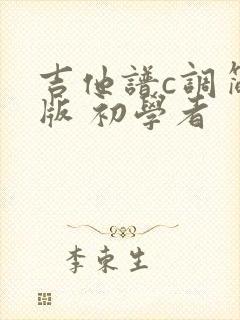 吉他譜c調簡
版 初學者
李東生